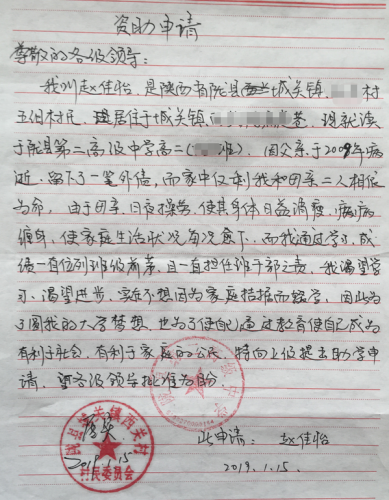 资助申请
尊敬的各级领导:
我叫赵佳怡,是陕西省陇县城关镇 村
五组村民,现居住于城关镇 巷,现就读
于陇县第二高级中学高二( 班),因父亲于2009年病
逝,留下了一笔外债,而家中仅剩我和母亲二人相依
为命,由于母亲日夜操劳,使其身体日益消瘦,疾病
缠身,使家庭生活状况每况愈下,而我通过学习,成
绩一直位列班级前茅,且一直担任班干部之责,我渴望学
习、渴望进步,实在不想因为家庭拮据而辍学,因此为
了圆我的大学梦想,也为了使自己通过教育使自己成为
有利于社会,有利于家庭的公民,特向上级提出助学申
请,望各级领导批准为盼
此申请: 赵佳怡
2019.1.15.
城关镇西关村
村民委员会
2019.1.15